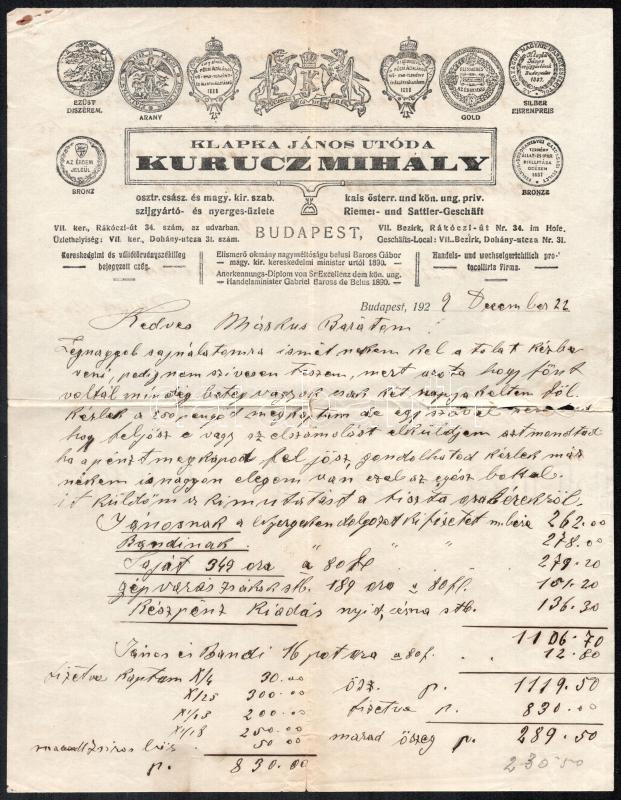 EZÜST
DISZÉREM.
ARANY
GOLD
SILBER
EHRENPREIS
AZ ÉRDEM
JELEÜL
BRONZ
BRONZ
KLAPKA JÁNOS UTÓDA
KURUCZ MIHÁLY
osztr. csász. és magy. kir. szab.
szijgyártó- és nyerges-üzlete
kais österr. und kön. ung. priv.
Riemer- und Sattler-Geschäft
VII. ker., Rákóczi-út 34. szám, az udvarban.
Üzlethelyiség: VII. ker., Dohány-utcza 31. szám.
BUDAPEST,
VII. Bezirk, Rákóczi-út Nr. 34. im Hofe.
Geschäfts-Local: VII. Bezirk, Dohány-utcza Nr. 31.
Kereskedelmi és váltótörvényszékileg
bejegyzett czég.
Elismerő okmány nagyméltóságu belusi Baross Gábor
magy. kir. kereskedelmi minister urtól 1890.
Anerkennungs-Diplom von Sr Excellenz dem kön. ung.
Handelsminister Gabriel Baross de Belus 1890.
Handels- und wechselgerichtlich pro-
tocollirte Firma.
Budapest, 1929 December 22
Kedves Márkus Barátom!
Legnagyob sajnálatomra ismét nekem kel a tolat kézba
venni, pedig nem szivesen teszem, mert azota hogy fönt
voltál mindig beteg vagyok csak két napja keltem föl.
Kérlek a 250 pengőt megkaptam de egy szóval
hogy feljösz e vagy az elszámolást elküldjem azt mondtad
ha a pénzt megkapod fel jösz, gondolhatod kérlek már
nekem is nagyon elegem van ezel az egész bottal.
itt küldöm a kimutatást a tiszta orabérekről.
Janosnak a Nyergeken dolgozott ki fizetet m.béra 262.00
Bandinak " " " 278.00
Saját 349 ora a 80 fl 279.20
gépvarás zsákok stb. 189 ora a 80 fl. 151.20
Készpénz Kiadás nyit, cérna stb. 136.30
1106.70
János és Bandi 16 pot ora a 80 f. 12.80
fizetve kaptam X/4 30.00
össz. p. 1119.50
X/25 300.00
fizetve p. 830.00
XI/13 200.00
marad összeg p. 289.50
XI/18 250.00
50.00
p. 830.00
230.50